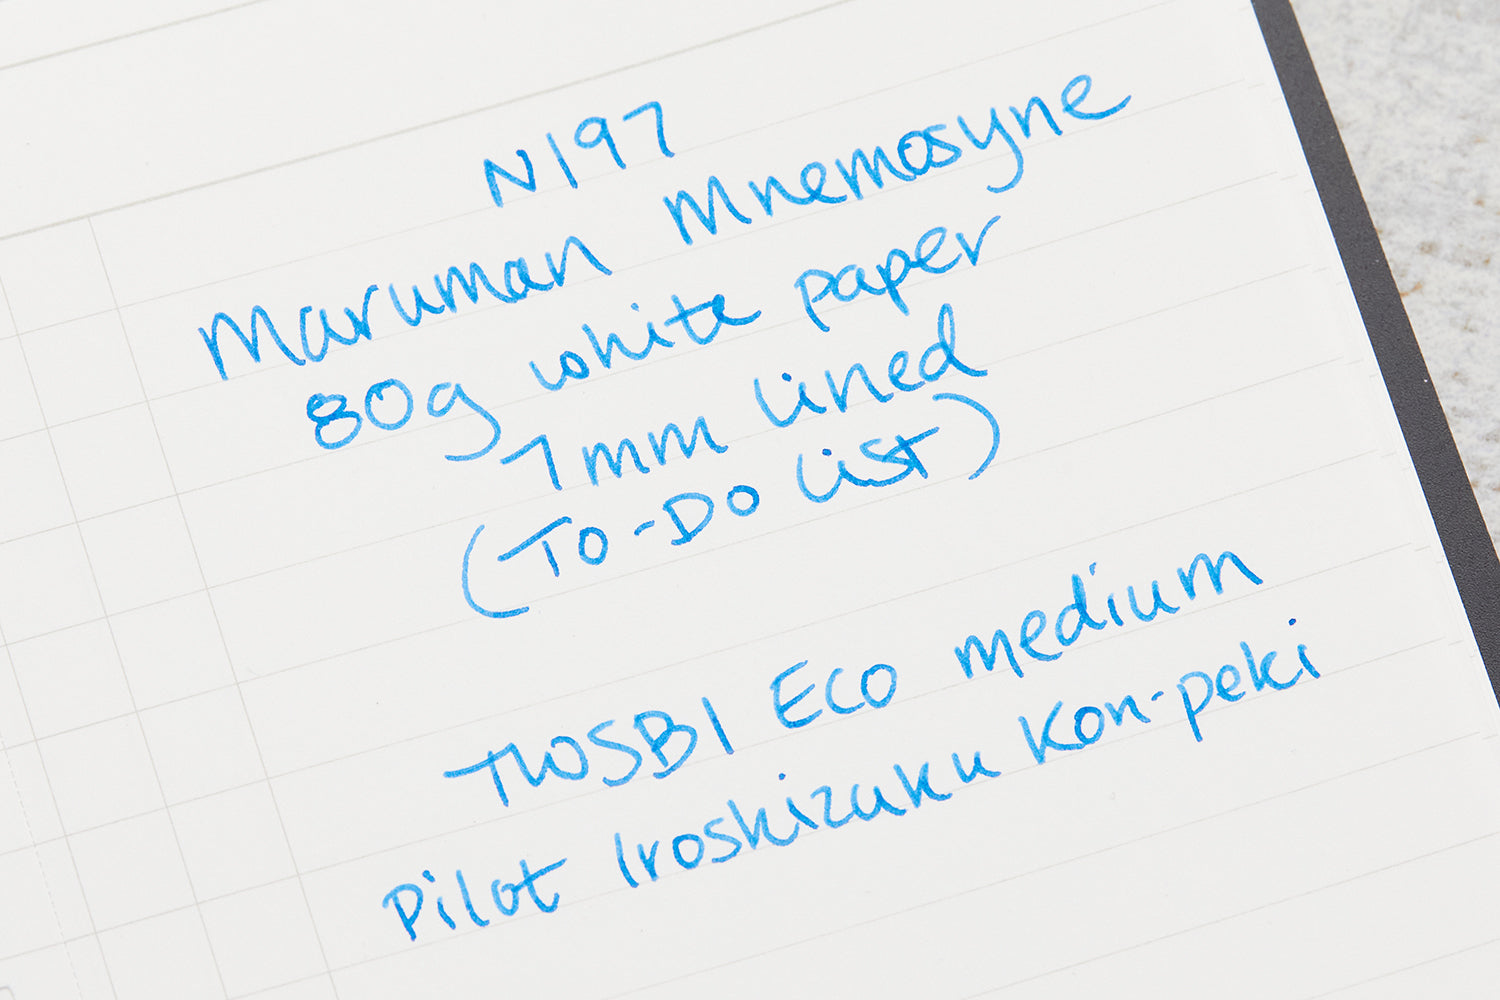 N197
Maruman Mnemosyne
80g white paper
7mm lined
(To-Do List)
TWSBI Eco medium
Pilot Iroshizuku Kon-peki